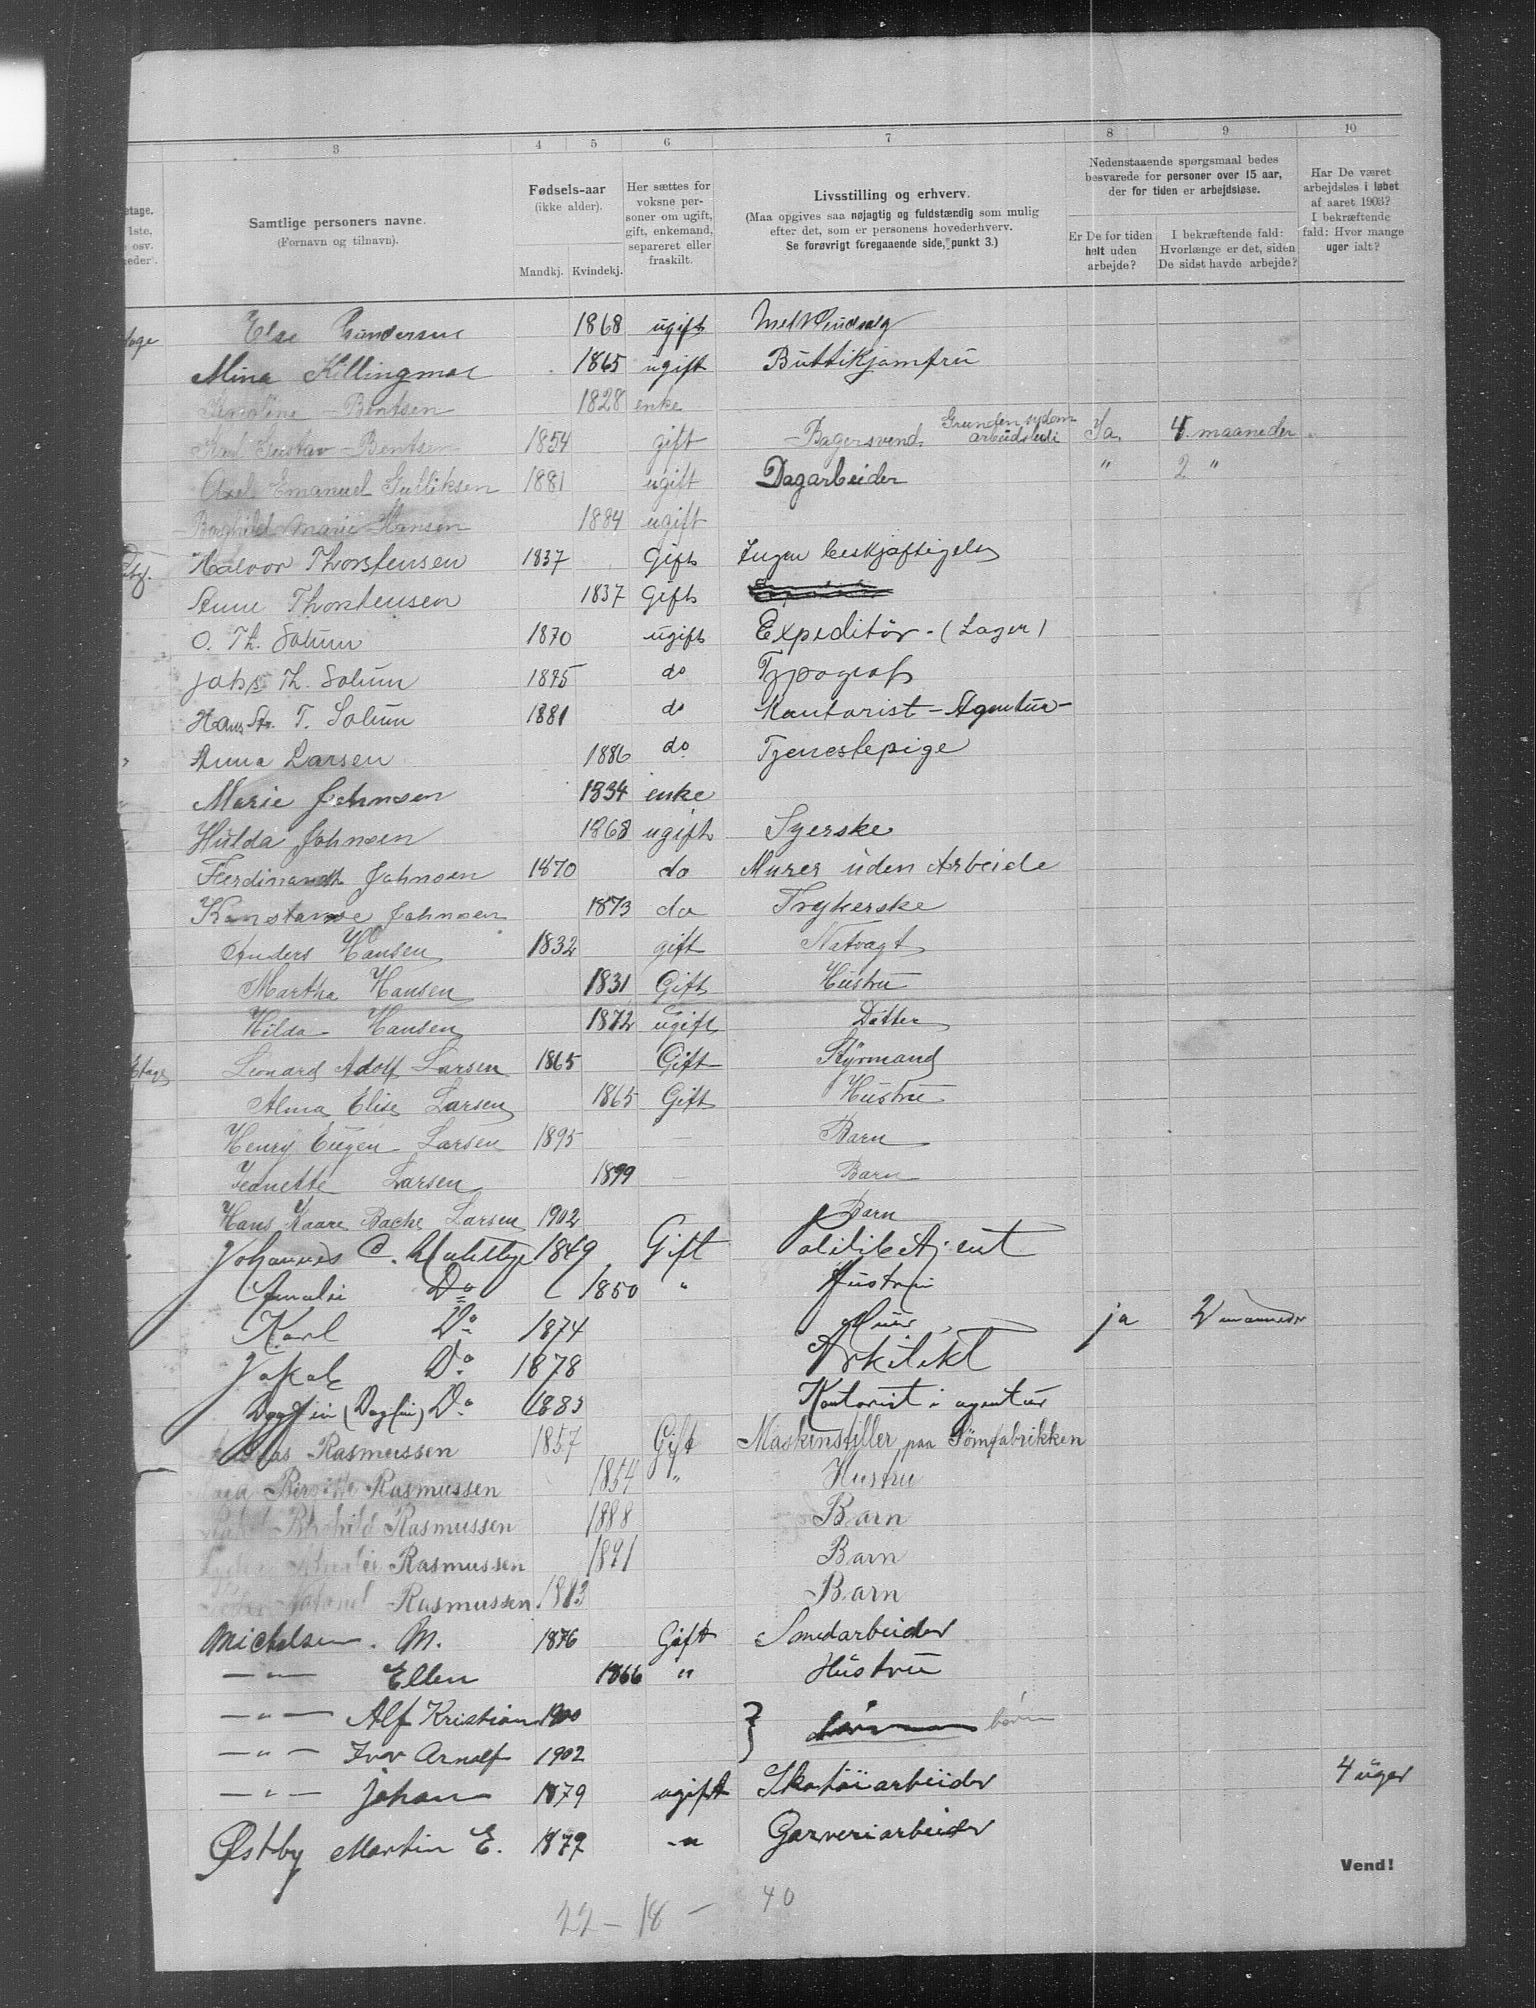 3 4 5 6 7 8 9 10
etage.
1ste,
osv.
eder.
Samtlige personers navne.
(Fornavn og tilnavn).
Fødsels-aar
(ikke alder).
Mandkj. Kvindekj.
Her sættes for
voksne per-
soner om ugift,
gift, enkemand,
separeret eller
fraskilt.
Livsstilling og erhverv.
(Maa opgives saa nøjagtig og fuldstændig som mulig
efter det, som er personens hovederhverv.
Se forøvrigt foregaaende side, punkt 3.)
Nedenstaaende spørgsmaal bedes
besvarede for personer over 15 aar,
der for tiden er arbejdsløse.
Er De for tiden
helt uden
arbejde?
I bekræftende fald:
Hvorlænge er det, siden
De sidst havde arbejde?
Har De været
arbejdsløs i løbet
af aaret 1903?
I bekræftende
fald: Hvor mange
uger ialt?
Else Gundersen 1868 ugift
Mina Killingmoe 1865 ugift Buttikjomfru
Bentsen 1828 enke
Karl Gustav Bentsen 1854 gift Bagersvend. Grunden sydom arbeidsledi Ja 4 maaneder
Axel Emanuel Gulliksen 1881 ugift Dagarbeider " 2 "
Marie Hansen 1884 ugift
Halvor Thorstensen 1837 Gift Ingen beskjæftigelse
Anne Thorstensen 1837 Gift
O. Th. Solum 1870 ugift Expeditör. (Lager)
Johs Th. Solum 1875 do Typograf
Hans T. Solum 1881 do Kontorist - Agentur -
Anna Larsen 1886 do Tjenestepige
Marie Johnsen 1834 enke
Hulda Johnsen 1868 ugift Syerske
Ferdinandt Johnsen 1870 do Murer uden Arbeide
Konstanse Johnsen 1873 do Trykerske
Anders Hansen 1832 gift Natvagt
Martha Hansen 1831 Gift Hustru
Hilda Hansen 1872 ugift Datter
Etage Leonard Adolf Larsen 1865 Gift Styrmand
Alma Elise Larsen 1865 Gift Hustru
Henry Eugen Larsen 1895 Barn
Jeanette Larsen 1899 Barn
Hans Kaare Bache Larsen 1902 Barn
Johannes C. 1849 Gift
Amalie Do 1850 " Hustru
Karl Do 1874 ja 2 maaneder
Jakob Do 1878 Arkitekt
Dagfin (Dagfin) Do 1883 Kontorist i agentur
Rasmussen 1857 Gift Maskenstiller paa Sömfabrikken
Rasmussen 1854 " Hustru
Rasmussen 1888 Barn
Rasmussen 1891 Barn
Rasmussen Barn
Michelsen. M. 1876 Gift Smedarbeider
— " — Ellen 1866 " Hustru
— " — Alf Kristian 1900 } børn
— " — Ivar Arnolf 1902
— " — Johan 1879 ugift Skotöiarbeider 4 uger
Østby Martin E. 1879 — " Garveriarbeider
Vend!
22 - 18 - 40